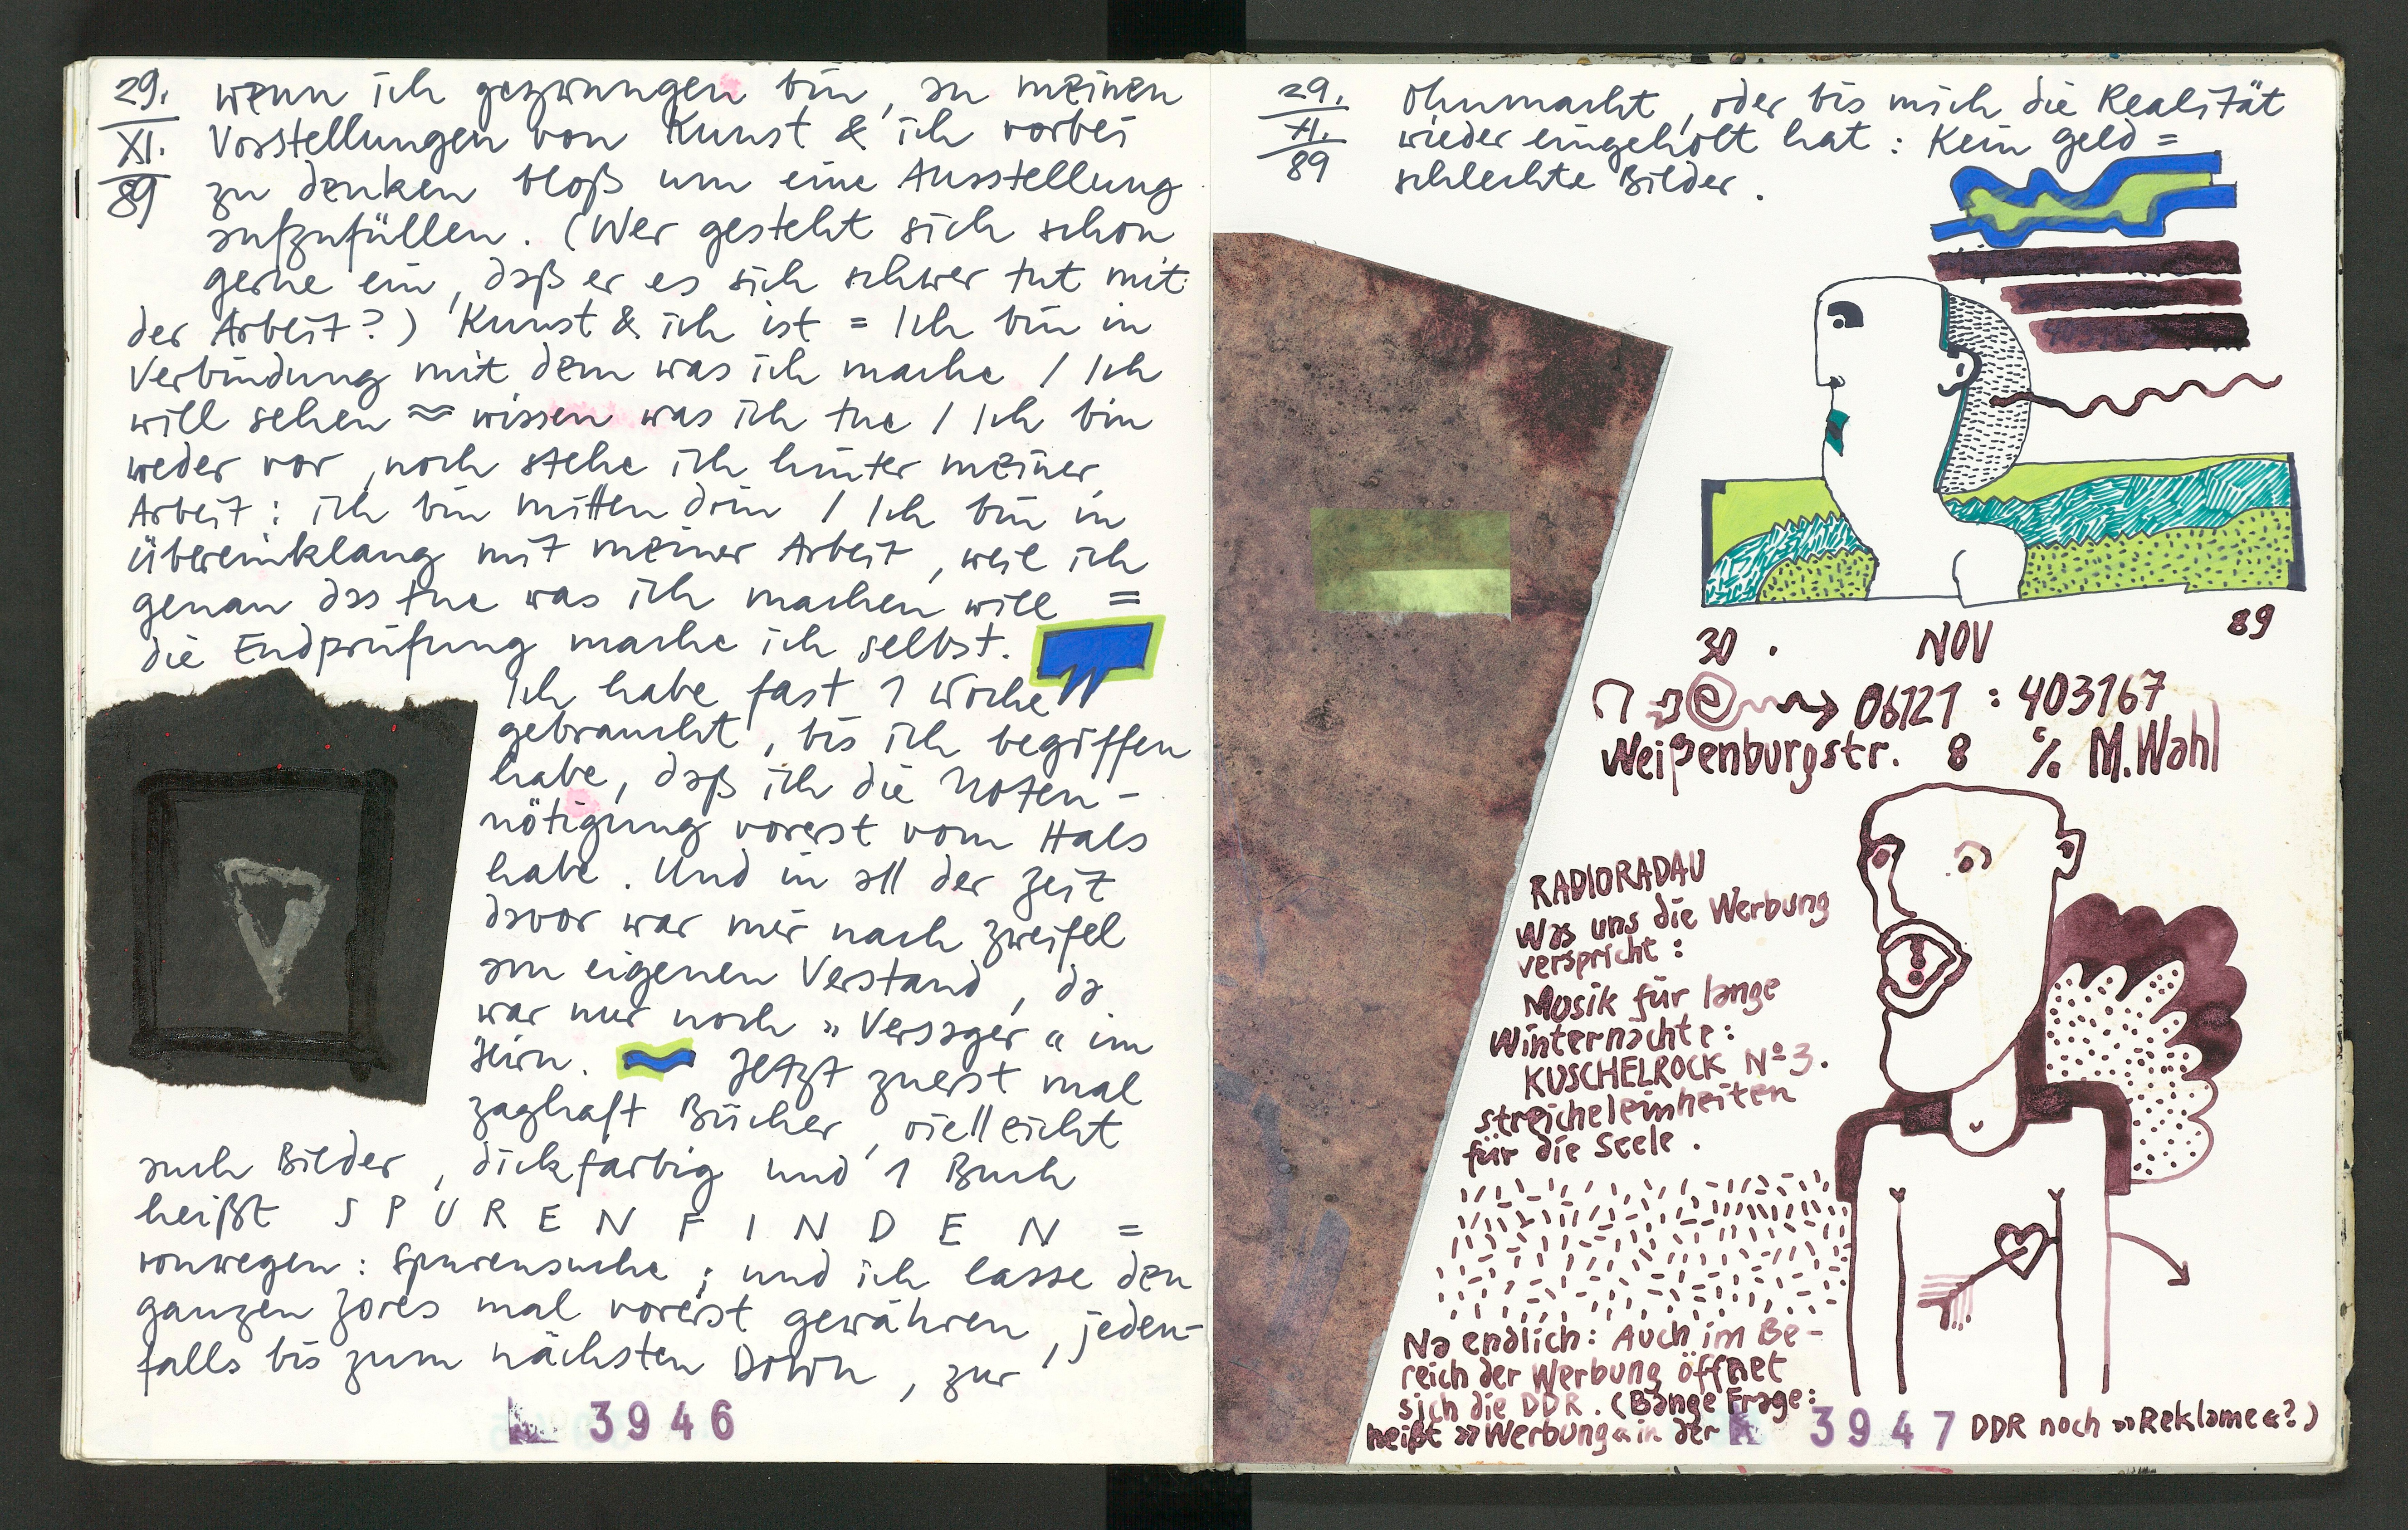 29.
XI.
89
wenn ich gezwungen bin, an meinen
Vorstellungen von Kunst & ich vorbei
zu denken bloß um eine Ausstellung
aufzufüllen. (Wer gesteht sich schon
gerne ein, daß er es sich schwer tut mit
der Arbeit?) Kunst & ich ist = Ich bin in
Verbindung mit dem was ich mache / Ich
will sehen ≈ wissen was ich tue / Ich bin
weder vor, noch stehe ich hinter meiner
Arbeit: ich bin mitten drin / Ich bin in
übereinklang mit meiner Arbeit, weil ich
genau das tue was ich machen will =
die Endprüfung mache ich selbst.
Ich habe fast 1 Woche
gebraucht, bis ich begriffen
habe, daß ich die Noten-
nötigung vorerst vom Hals
habe. Und in all der Zeit
davor war mir nach Zweifel
am eigenen Verstand, da
war nur noch »Versager« im
Hirn. Jetzt zuerst mal
zaghaft Bücher, vielleicht
auch Bilder, dickfarbig und 1 Buch
heißt SPURENFINDEN =
vonwegen: Spurensuche; und ich lasse den
ganzen Zores mal vorerst gewähren, jeden-
falls bis zum nächsten Down, zur
3946
29.
XI.
89
Ohnmacht, oder bis mich die Realität
wieder eingeholt hat: Kein Geld =
schlechte Bilder.
30. NOV 89
06121 : 403167
Weißenburgstr. 8 % M.Wahl
RADIORADAU
Was uns die Werbung
verspricht:
Musik für lange
Winternächte:
KUSCHELROCK Nº 3.
streicheleinheiten
für die Seele.
Na endlich: Auch im Be-
reich der Werbung öffnet
sich die DDR. (Bange Frage:
heißt »Werbung« in der DDR noch »Reklame«?)
3947